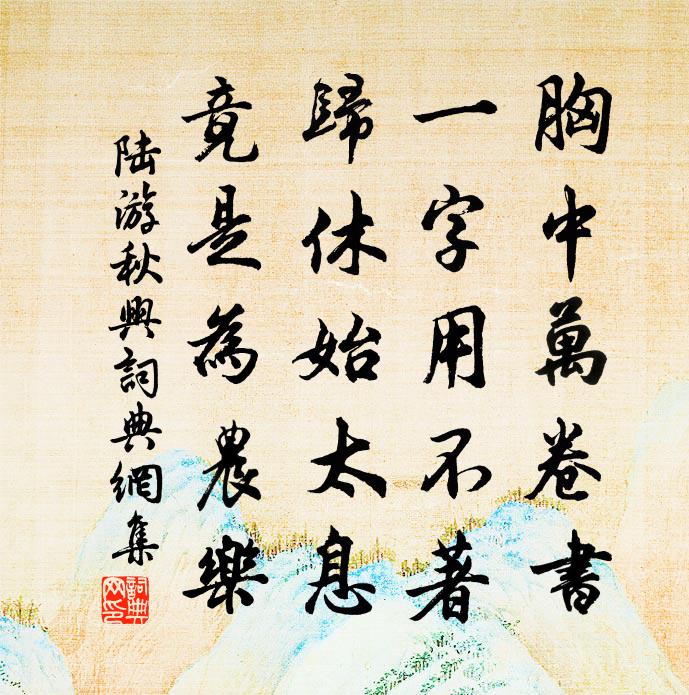 胸中萬卷書
一字用不著
歸休始太息
竟是為農樂
陸游秋興詞典網集
詞典